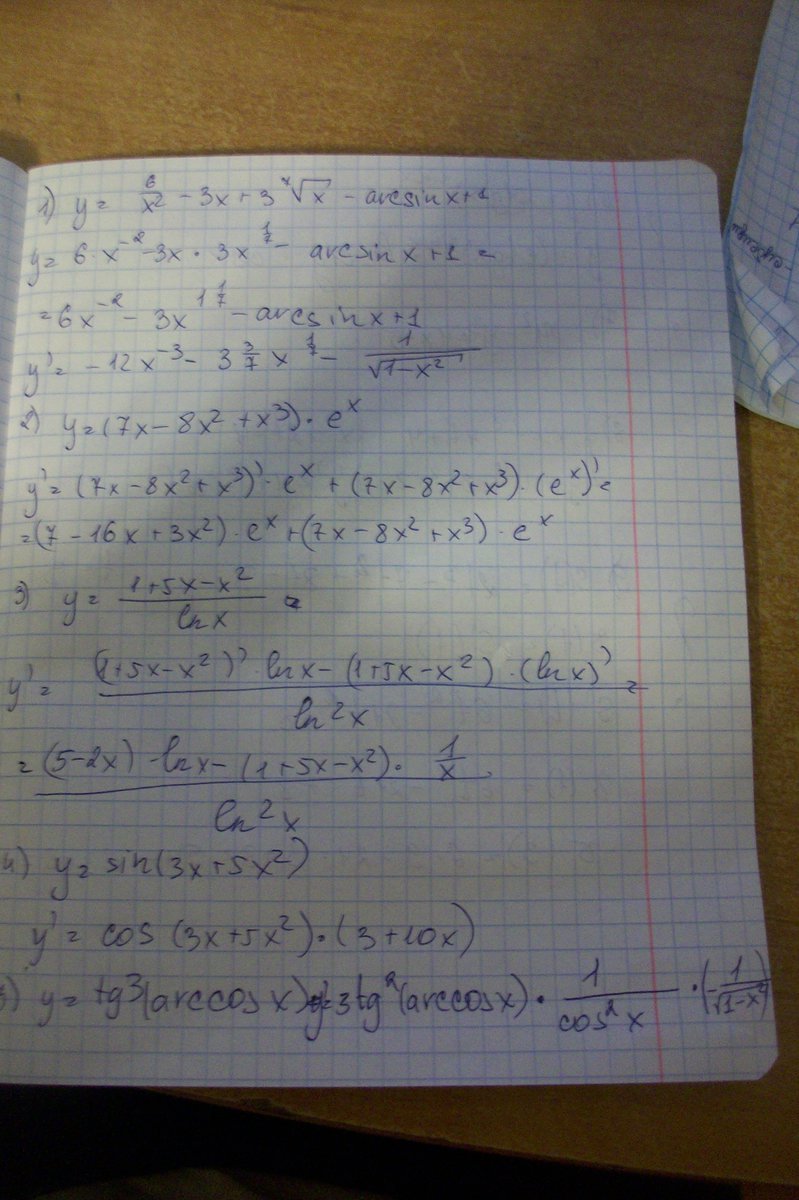 1) y = 6/x² - 3x + 3 ⁷√x - arcsin x + 1
y = 6 · x⁻² - 3x · 3x^(1/7) - arcsin x + 1 =
= 6x⁻² - 3x^(1 1/7) - arcsin x + 1
y' = - 12x⁻³ - 3 3/7 x^(1/7) - 1/√(1-x²)
2) y = (7x - 8x² + x³) · eˣ
y' = (7x - 8x² + x³)' · eˣ + (7x - 8x² + x³) · (eˣ)' =
= (7 - 16x + 3x²) · eˣ + (7x - 8x² + x³) · eˣ
3) y = (1+5x-x²)/(ln x) =
y' = ((1+5x-x²)' · ln x - (1+5x-x²) · (ln x)')/(ln²x) =
= ((5-2x) · ln x - (1+5x-x²) · 1/x)/(ln²x)
4) y = sin(3x+5x²)
y' = cos (3x+5x²) · (3+10x)
5) y = tg³(arccos x) y' = 3tg²(arccos x) · 1/(cos²x) · (- 1/√(1-x²))